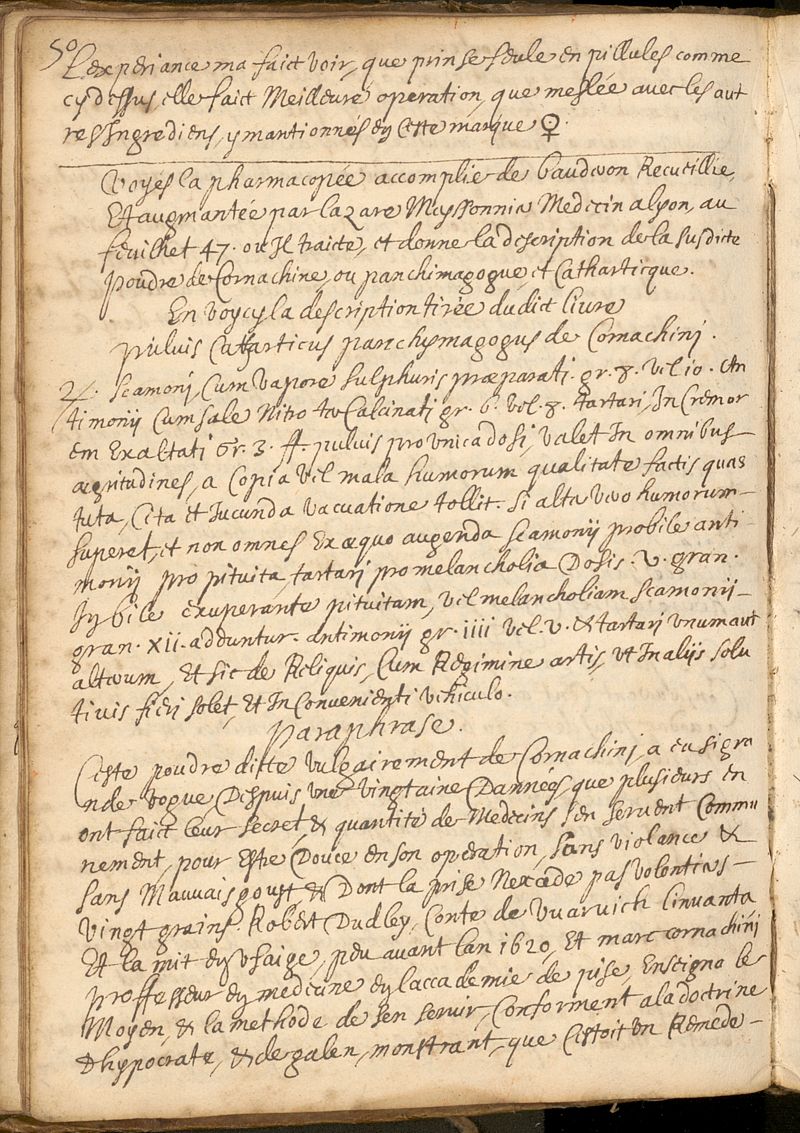 50
Lexperiance ma faict voir, que prinse seule en pillules comme
cy dessus, elle faict Meilleure operation, que meslée avec les aut
res Ingrediens, y mantionnés en ceste marque ♀.
Voyés la pharmacopée accomplie de bauderon Recueillie,
Et augmantée par lazare Meyssonnia Medecin a lyon, au
feuilhet 47. ou Il traicte, et donne la description de la susdicte
poudre de Cornachine, ou panchimagogue, et Catharticque.
En voycy la description tirée dudict livre
puluis Catharticus panchymagogus de Cornachinj.
♃. Scamonij Cum vapore sulphuris præparati. gr. 8. vel 10. An
timonij Cum sale Nitro ter Calcinati gr. 6. vel. 8. tartari, In Cremor
em Exaltati Gr. 3. ff. puluis pro vnica dosi, valet In omnibus
ægritudines, a Copia vel mala humorum qualitate factis quas
tuta, Cita et Iucunda vacuatione tollit. Si alter vero humorum
superet, et non omnes Ex æquo augenda scamonij pro bile anti
monij pro pituita, tartarj pro melancholia Dosis. v. gran.
Sy bile exuperante pituitam, vel melancholiam scamonij
gran. XII. adduntur. antimonij gr. IIII vel. v. & tartari vnum aut
alterum, Et sic de Reliquis, Cum Regimine artis, vt In alijs solu
tiuis fieri solet, Et In Convenienti vehiculo.
Paraphrase.
Ceste poudre ditte vulgairement de Cornachinj, a eu si gra
nde vogue Despuis vne vingtaine Dannées, que plusieurs en
ont faict leur secret, & quantité de Medecins sen servent Commu
nement, pour Estre Douce en son operation, sans violance &
sans Mauvais goust & Dont la prise Nexcede pas volontiers
vingt grains. Robert Dudley, Conte de Vuarvich linvanta
Et la mit en vsaige, peu avant lan 1620, Et marc cornachinj
proffesseur en medecine en laccademie de pise, Enseigna le
Moyen, & la methode de sen servir, Conforment a la doctrine
Dhypocrate, & de galen, monstrant, que Cestoit vn Remede